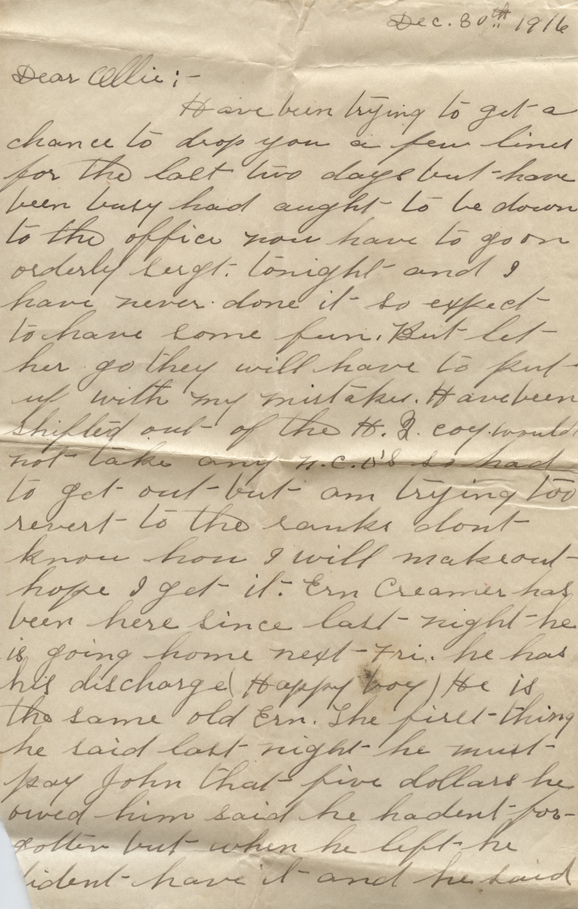 Dec. 30th 1916
Dear Ollie:-
Have been trying to get a
chance to drop you a few lines
for the last two days but have
been busy had aught to be down
to the office now have to go on
orderly sergt. tonight and I
have never done it so expect
to have some fun. But let
her go they will have to put
up with my mistakes. Have been
shifted out of the H.Q. coy. would
not take any n.c.o's so had
to get out but am trying too
revert to the ranks dont
know how I will make out
hope I get it. Ern Creamer has
been here since last night he
is going home next Fri. he has
his discharge (Happy boy) He is
the same old Ern. The first thing
he said last night he must
pay John that five dollars he
owed him said he hadent for-
gotten but when he left he
dident have it and he said